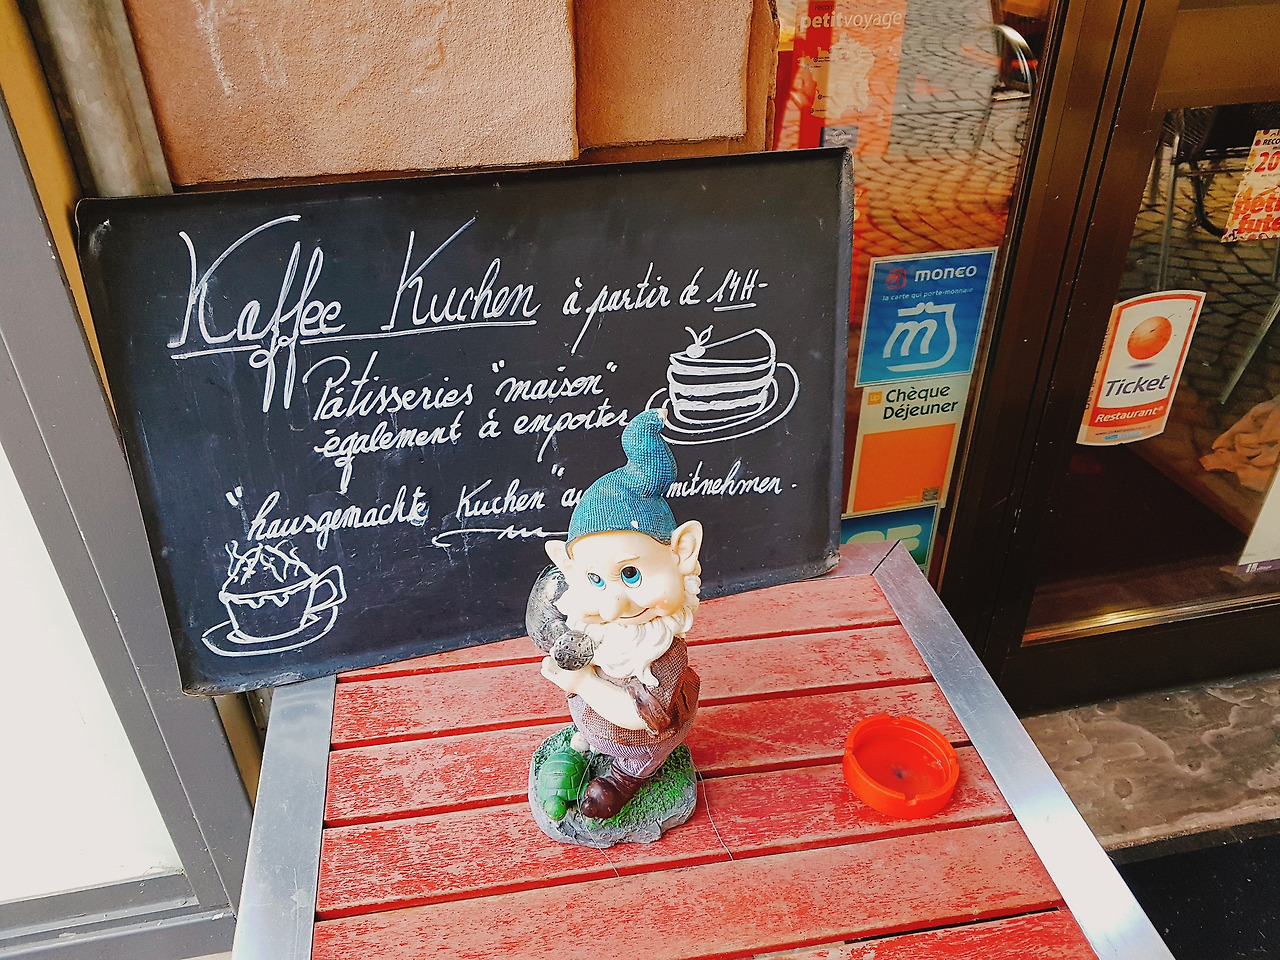 Kaffee Kuchen à partir de 14H-
Pâtisseries "maison"
également à emporter
"hausgemachte Kuchen" mitnehmen.
petitvoyage
moneo
la carte qui porte-monnaie
Chèque
Déjeuner
up
Ticket
Restaurant